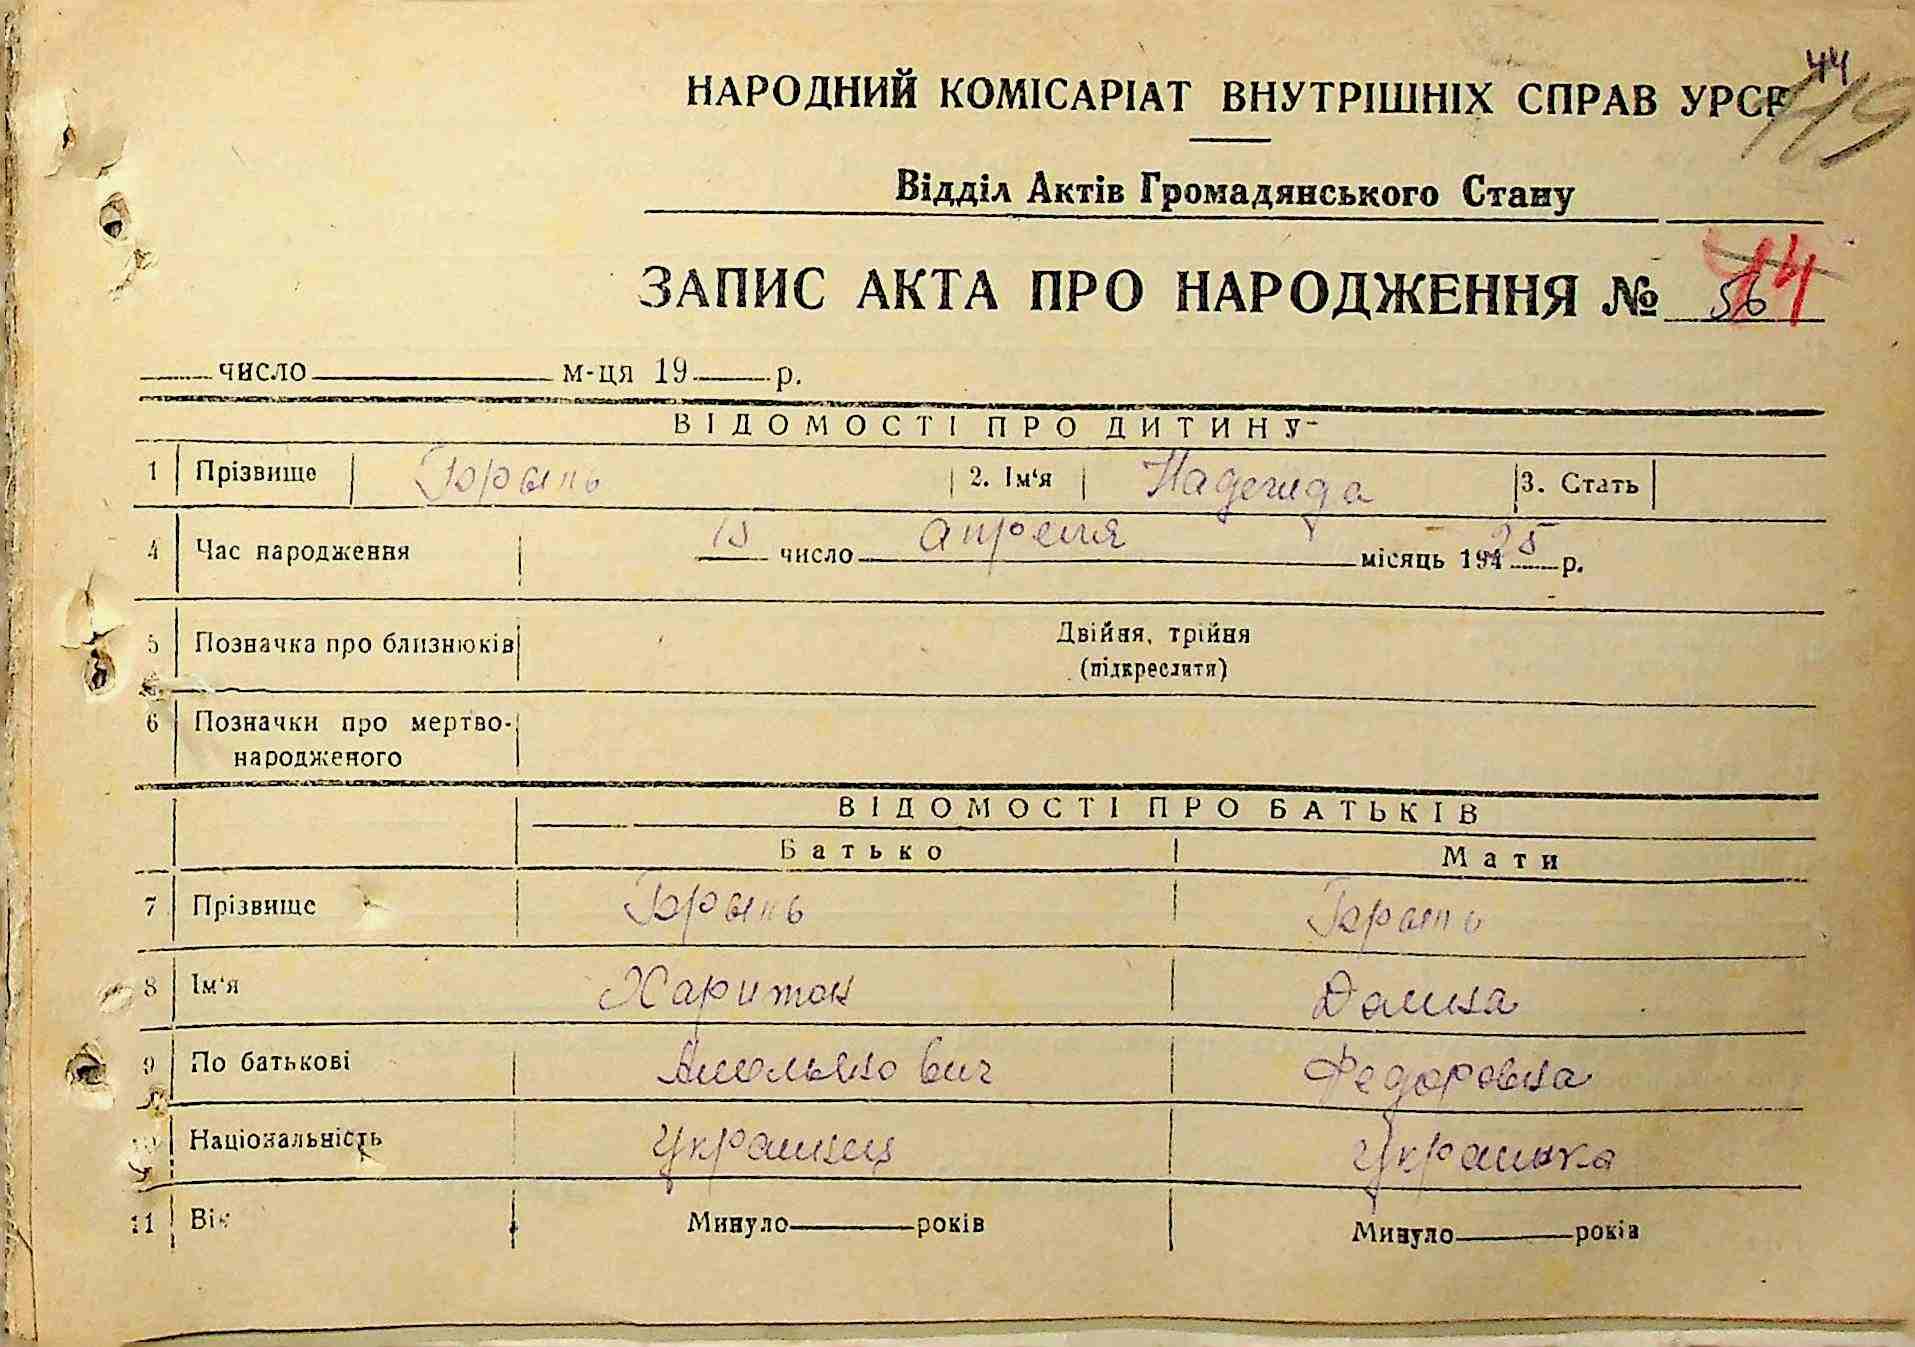 44
119
НАРОДНИЙ КОМІСАРІАТ ВНУТРІШНІХ СПРАВ УРСР
Відділ Актів Громадянського Стану
ЗАПИС АКТА ПРО НАРОДЖЕННЯ № 56 44
число м-ця 19 р.
ВІДОМОСТІ ПРО ДИТИНУ
1 Прізвище 2. Ім'я Надежда 3. Стать
4 Час народження число апреля місяць 194 25 р.
5 Позначка про близнюків Двійня, трійня
(підкреслити)
6 Позначки про мертво-
народженого
ВІДОМОСТІ ПРО БАТЬКІВ
Батько Мати
7 Прізвище
8 Ім'я Харитон Домна
9 По батькові Федоровна
10 Національність Украинец Украинка
11 Вік Минуло років Минуло років